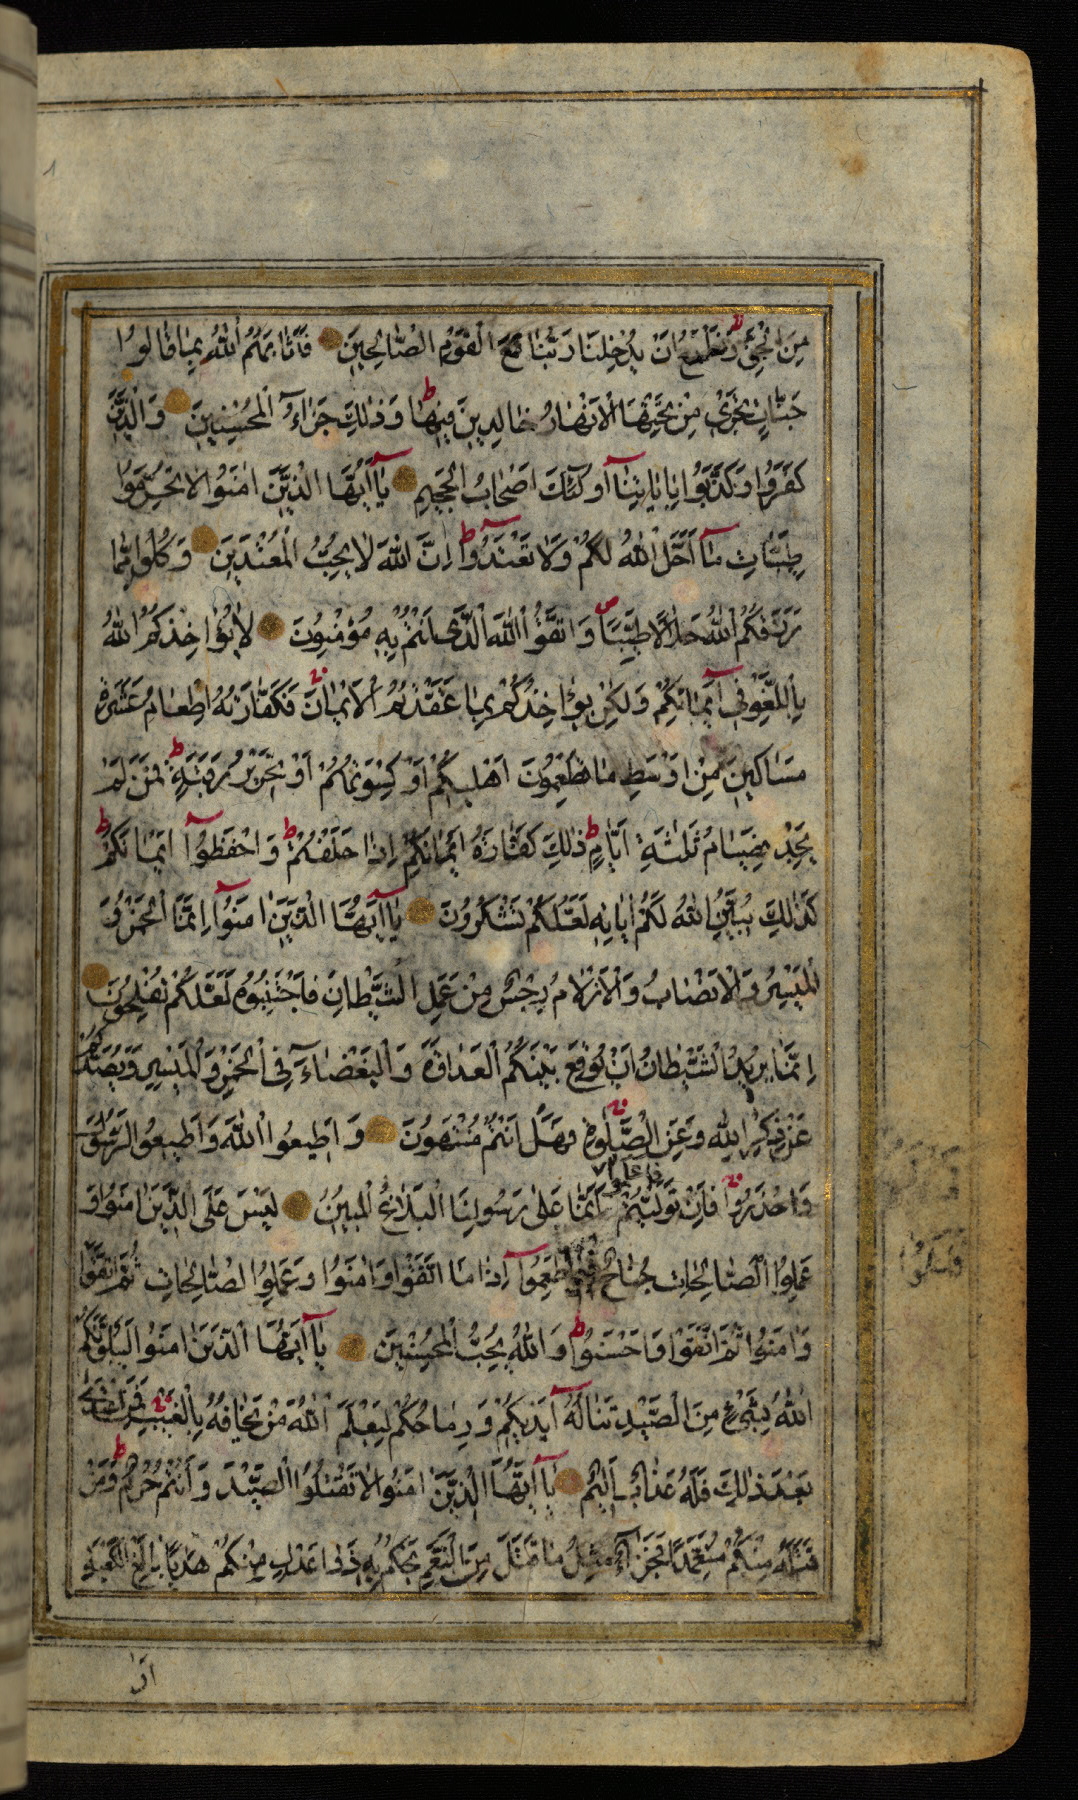 مِنَ الْحَقِّ وَنَطْمَعُ اَنْ يُدْخِلَنَا رَبُّنَا مَعَ الْقَوْمِ الصَّالِحِينَ فَاَثَابَهُمُ اللّٰهُ بِمَا قَالُوا
جَنَّاتٍ تَجْرِي مِنْ تَحْتِهَا الْاَنْهَارُ خَالِدِينَ فِيهَا وَذٰلِكَ جَزَاءُ الْمُحْسِنِينَ وَالَّذِينَ
كَفَرُوا وَكَذَّبُوا بِاٰيَاتِنَا اُولٰئِكَ اَصْحَابُ الْجَحِيمِ يَا اَيُّهَا الَّذِينَ اٰمَنُوا لَا تُحَرِّمُوا
طَيِّبَاتِ مَا اَحَلَّ اللّٰهُ لَكُمْ وَلَا تَعْتَدُوا اِنَّ اللّٰهَ لَا يُحِبُّ الْمُعْتَدِينَ وَكُلُوا مِمَّا
رَزَقَكُمُ اللّٰهُ حَلَالًا طَيِّبًا وَاتَّقُوا اللّٰهَ الَّذِي اَنْتُمْ بِهِ مُؤْمِنُونَ لَا يُؤَاخِذُكُمُ اللّٰهُ
بِاللَّغْوِ فِي اَيْمَانِكُمْ وَلٰكِنْ يُؤَاخِذُكُمْ بِمَا عَقَّدْتُمُ الْاَيْمَانَ فَكَفَّارَتُهُ اِطْعَامُ عَشَرَةِ
مَسَاكِينَ مِنْ اَوْسَطِ مَا تُطْعِمُونَ اَهْلِيكُمْ اَوْ كِسْوَتُهُمْ اَوْ تَحْرِيرُ رَقَبَةٍ فَمَنْ لَمْ
يَجِدْ فَصِيَامُ ثَلٰثَةِ اَيَّامٍ ذٰلِكَ كَفَّارَةُ اَيْمَانِكُمْ اِذَا حَلَفْتُمْ وَاحْفَظُوا اَيْمَانَكُمْ
كَذٰلِكَ يُبَيِّنُ اللّٰهُ لَكُمْ اٰيَاتِهِ لَعَلَّكُمْ تَشْكُرُونَ يَا اَيُّهَا الَّذِينَ اٰمَنُوا اِنَّمَا الْخَمْرُ وَ
الْمَيْسِرُ وَالْاَنْصَابُ وَالْاَزْلَامُ رِجْسٌ مِنْ عَمَلِ الشَّيْطَانِ فَاجْتَنِبُوهُ لَعَلَّكُمْ تُفْلِحُونَ
اِنَّمَا يُرِيدُ الشَّيْطَانُ اَنْ يُوقِعَ بَيْنَكُمُ الْعَدَاوَةَ وَالْبَغْضَاءَ فِي الْخَمْرِ وَالْمَيْسِرِ وَيَصُدَّكُمْ
عَنْ ذِكْرِ اللّٰهِ وَعَنِ الصَّلٰوةِ فَهَلْ اَنْتُمْ مُنْتَهُونَ وَاَطِيعُوا اللّٰهَ وَاَطِيعُوا الرَّسُولَ
وَاحْذَرُوا فَاِنْ تَوَلَّيْتُمْ فاعلموا اَنَّمَا عَلٰى رَسُولِنَا الْبَلَاغُ الْمُبِينُ لَيْسَ عَلَى الَّذِينَ اٰمَنُوا وَ
عَمِلُوا الصَّالِحَاتِ جُنَاحٌ فِيمَا طَعِمُوا اِذَا مَا اتَّقَوْا وَاٰمَنُوا وَعَمِلُوا الصَّالِحَاتِ ثُمَّ اتَّقَوْا
وَاٰمَنُوا ثُمَّ اتَّقَوْا وَاَحْسَنُوا وَاللّٰهُ يُحِبُّ الْمُحْسِنِينَ يَا اَيُّهَا الَّذِينَ اٰمَنُوا لَيَبْلُوَنَّكُمُ
اللّٰهُ بِشَيْءٍ مِنَ الصَّيْدِ تَنَالُهُ اَيْدِيكُمْ وَرِمَاحُكُمْ لِيَعْلَمَ اللّٰهُ مَنْ يَخَافُهُ بِالْغَيْبِ فَمَنِ اعْتَدٰى
بَعْدَ ذٰلِكَ فَلَهُ عَذَابٌ اَلِيمٌ يَا اَيُّهَا الَّذِينَ اٰمَنُوا لَا تَقْتُلُوا الصَّيْدَ وَاَنْتُمْ حُرُمٌ وَمَنْ
قَتَلَهُ مِنْكُمْ مُتَعَمِّدًا فَجَزَاءٌ مِثْلُ مَا قَتَلَ مِنَ النَّعَمِ يَحْكُمُ بِهِ ذَوَا عَدْلٍ مِنْكُمْ هَدْيًا بَالِغَ الْكَعْبَةِ